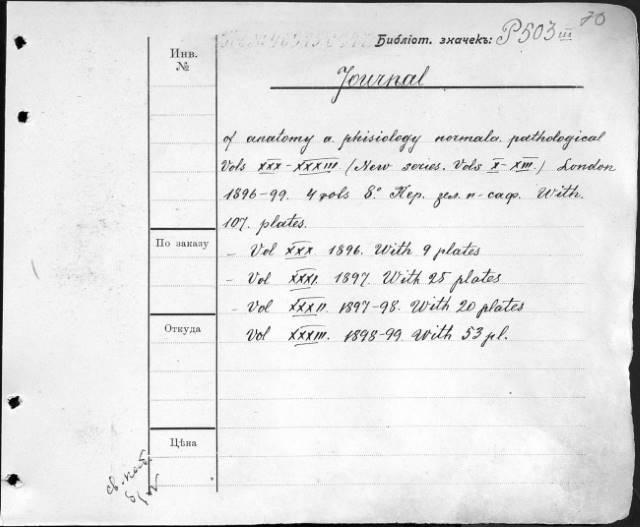 70
Библіот. значекъ: P503 III
Инв.
№
Journal
of anatomy a. phisiology normala. pathological
Vols XXX-XXXIII (New series. Vols X-XIII.) London
1896-99. 4 vols 8.° Пер. зел. п-саф. With.
107. plates.
По заказу
- Vol XXX 1896. With 9 plates
- Vol XXXI. 1897. With 25 plates
- Vol XXXII. 1897-98. With 20 plates
Откуда
Vol XXXIII. 1898-99. With 53 pl.
Цѣна